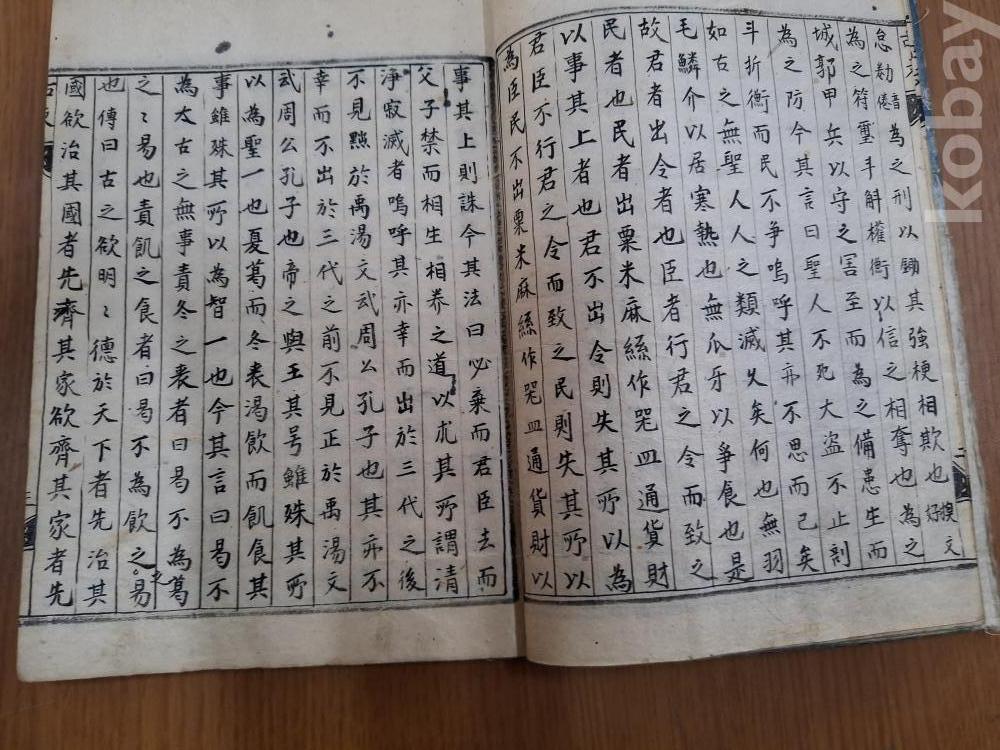 怠勌音倦為之刑以鋤其強梗相欺也
為之符璽斗斛權衡以信之相奪也為之
城郭甲兵以守之害至而為之備患生而
為之防今其言曰聖人不死大盗不止剖
斗折衡而民不爭嗚呼其亦不思而已矣
如古之無聖人人之類滅久矣何也無羽
毛鱗介以居寒熱也無爪牙以爭食也是
故君者出令者也臣者行君之令而致之
民者也民者出粟米麻絲作器皿通貨財
以事其上者也君不出令則失其所以為
君臣不行君之令而致之民則失其所以
為臣民不出粟米麻絲作器皿通貨財以
事其上則誅今其法曰必棄而君臣去而
父子禁而相生相養之道以求其所謂清
淨寂滅者嗚呼其亦幸而出於三代之後
不見黜於禹湯文武周公孔子也其亦不
幸而不出於三代之前不見正於禹湯文
武周公孔子也帝之與王其号雖殊其所
以為聖一也夏葛而冬裘渴飲而飢食其
事雖殊其所以為智一也今其言曰曷不
為太古之無事責冬之裘者曰曷不為葛
之〻易也責飢之食者曰曷不為飲之之易
也傳曰古之欲明〻德於天下者先治其
國欲治其國者先齊其家欲齊其家者先
kobay